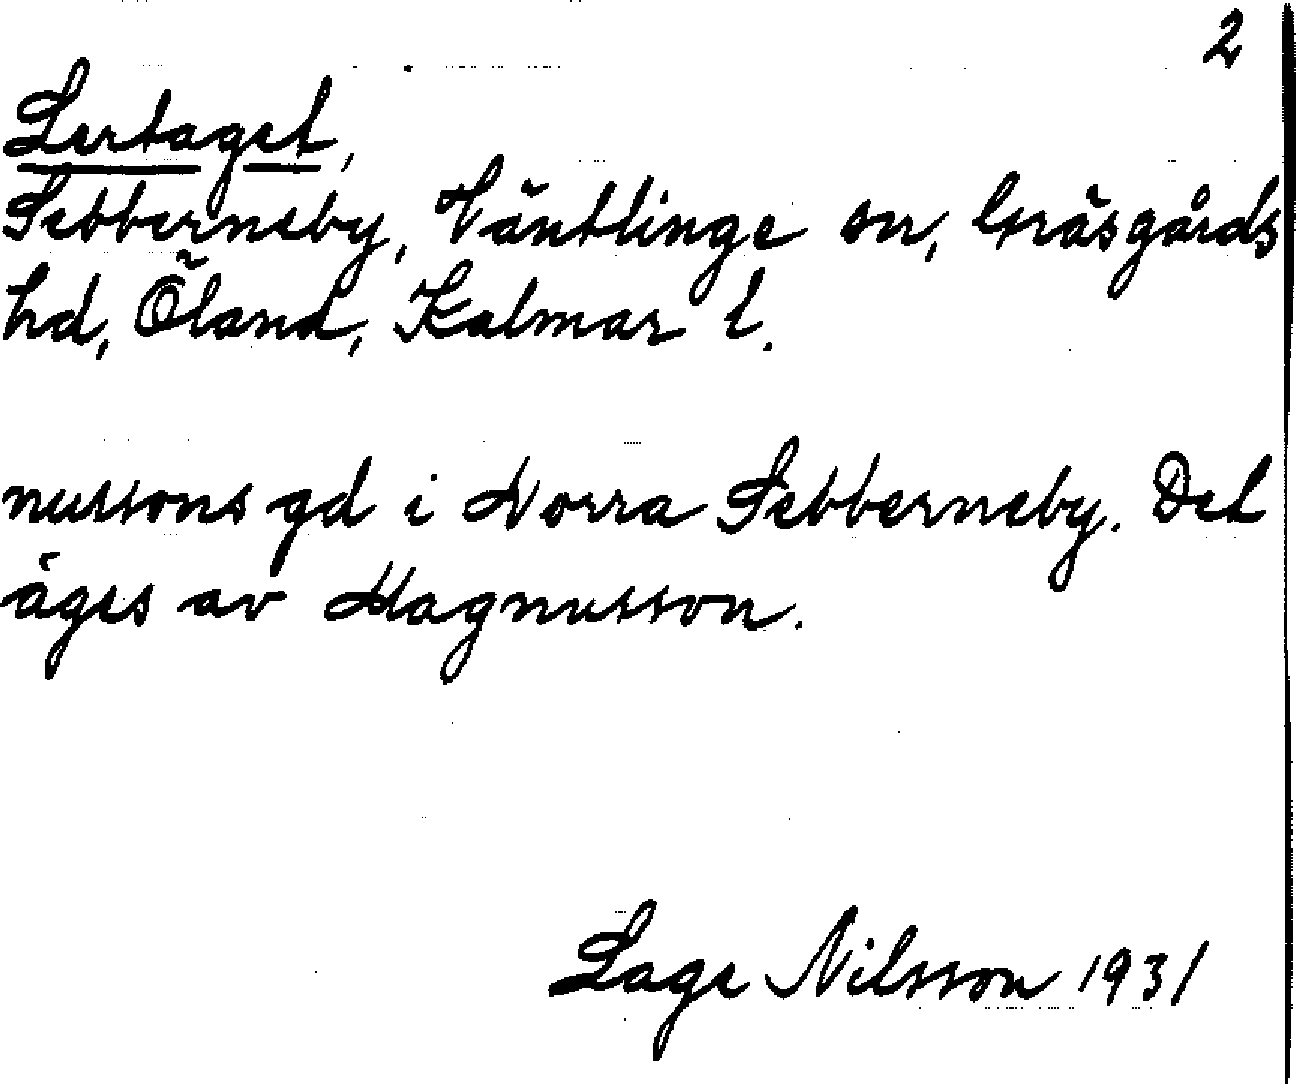 2
Lertaget,
Sebberneby, Ventlinge sn, Gräsgårds
hd, Öland, Kalmar l.
nussons gd i Norra Sebberneby. Det
äges av Magnusson.
Lage Nilsson 1931